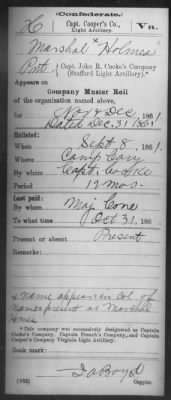 (Confederate.)
H Capt. Cooper's Co., Va.
Light Artillery.*
Marshal Holmes
Pvt., Capt. John R. Cooke's Company
(Stafford Light Artillery).*
Appears on
Company Muster Roll
of the organization named above,
for Nov & Dec, 1861.
Dated Dec. 31, 1861
Enlisted:
When Sept. 8, 1861.
Where Camp Cary
By whom Capt. Cooke
Period 12 mos.
Last paid:
By whom Maj. Cone
To what time Oct. 31, 186
Present or absent Present
Remarks:
x name appears in col. of
names present as Marshal
*This company was successively designated as Captain
Cooke's Company, Captain French's Company, and Captain
Cooper's Company Virginia Light Artillery.
Book mark:
J A Boyd
(642) Copyist.